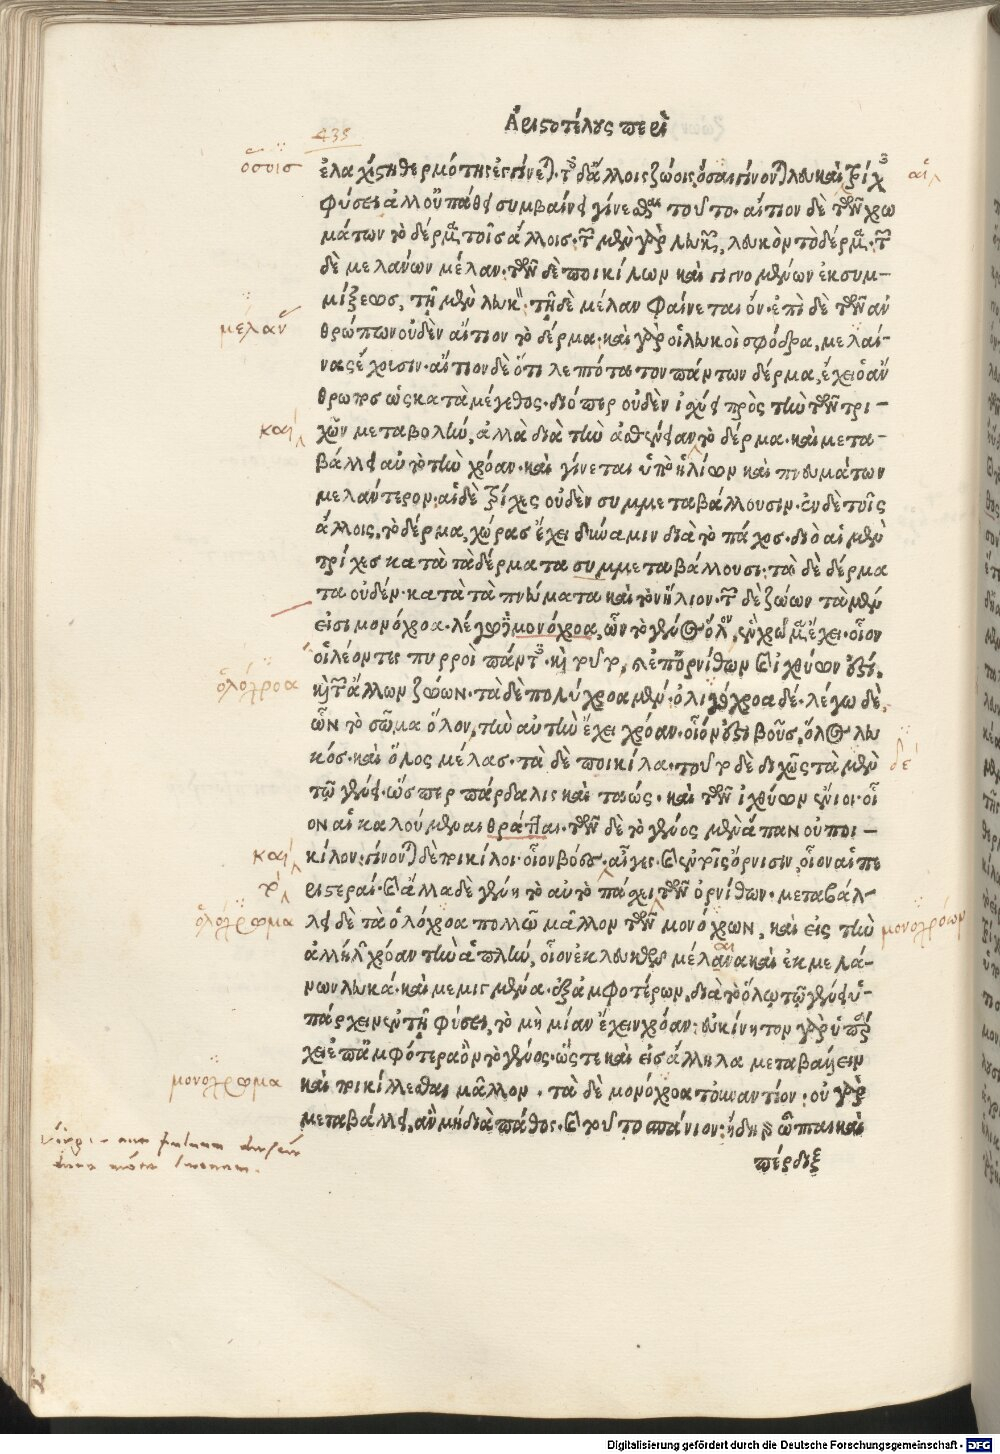 Ἀριστοτέλους περὶ
435
ὅσοις
ἐλαχίστη θερμότης ἐγγίνεται. τοῖς δ' ἄλλοις ζώοις ὅσαι γίνονται λευκαὶ τρίχες
αἱ
φύσει ἀλλ' οὐ πάθει συμβαίνει γίνεσθαι τοῦτο. αἴτιον δὲ τῶν χρω
μάτων τὸ δέρμα τοῖς ἄλλοις. τῶν μὲν γὰρ λευκῶν, λευκὸν τὸ δέρμα. τῶν
δὲ μελανων μέλαν. τῶν δὲ ποικίλων καὶ γινομένων ἐκ συμ-
μίξεως, τῇ μὲν λευκὸν. τῇ δὲ μέλαν φαίνεται ὄν. ἐπὶ δὲ τῶν ἀν
μέλαν
θρώπων οὐδὲν αἴτιον τὸ δέρμα. καὶ γὰρ οἱ λευκοὶ σφόδρα, μελαί-
νας ἔχουσιν. αἴτιον δὲ ὅτι λεπτότατον πάντων δέρμα, ἔχει ὁ ἄν
θρωπος ὡς κατὰ μέγεθος. διόπερ οὐδὲν ἰσχύει πρὸς τὴν τῶν τρι-
καὶ
χῶν μεταβολὴν, ἀλλὰ διὰ τὴν ἀσθένειαν τὸ δέρμα. καὶ μετα-
βάλλει αὐτὸ τὴν χρόαν. καὶ γίνεται ὑπὸ ἡλίων καὶ πνευμάτων
μελάντερον. αἱ δὲ τρίχες οὐδὲν συμμεταβάλλουσιν. ἐν δὲ τοῖς
ἄλλοις, τὸ δέρμα, χώρας ἔχει δύναμιν διὰ τὸ πάχος. διὸ αἱ μὲν
τρίχες κατὰ τὰ δέρματα συμμεταβάλλουσι. τὰ δὲ δέρμα
τα οὐδὲν. κατὰ τὰ πνεύματα καὶ τὸν ἥλιον. τῶν δὲ ζώων τὰ μὲν
εἰσι μονόχροα. λέγω δὲ μονόχροα, ὧν τὸ γένος ὅλον, ἓν χρῶμα ἔχει. οἷον
οἱ λέοντες πυρροὶ πάντες. καὶ τοῦτο, καὶ ἐπ' ὀρνίθων καὶ ἰχθύων ἐστί.
ὁλόχροα
καὶ τῶν ἄλλων ζώων. τὰ δὲ πολύχροα μὲν. ὁλιγόχροα δέ. λέγω δὲ,
ὧν τὸ σῶμα ὅλον, τὴν αὐτὴν ἔχει χρόαν. οἷόν ἐστι βοῦς, ὅλος λευ
κός. καὶ ὅλος μέλας. τὰ δὲ ποικίλα. τοῦτο δὲ διχῶς τὰ μὲν
δὲ
τῷ γένει. ὥσπερ πάρδαλις καὶ ταώς. καὶ τῶν ἰχθύων ἔνιοι. οἷ
ον αἱ καλούμεναι θρᾷτται. τῶν δὲ τὸ γένος μὲν ἅπαν οὐ ποι-
καὶ
κίλον. γίνονται δὲ ποικίλοι. οἷον βόες. αἶγες. καὶ ἐν τοῖς ὄρνισιν, οἷον αἱ πε
τὸ
ριστεραί. καὶ ἄλλα δὲ γένη τὸ αὐτὸ πάσχει τῶν ὀρνίθων. μεταβάλ-
ὁλόχρωμα
λει δὲ τὰ ὁλόχροα πολλῷ μᾶλλον τῶν μονόχρων, καὶ εἰς τὴν
μονοχρόων
ἀλλήλων χρόαν τὴν ἁπλῆν, οἷον ἐκ λευκῶν μέλανα καὶ ἐκ μελά-
αι
νων λευκά. καὶ μεμιγμένα. ἐξ ἀμφοτέρων, διὰ τὸ ὅλῳ τῷ γένει ὑ-
πάρχειν ἐν τῇ φύσει, τὸ μὴ μίαν ἔχειν χρόαν. εὐκίνητον γὰρ ὑπάρ
χει ἐπ' ἀμφότερα ὂν τὸ γένος. ὥστε καὶ εἰς ἄλληλα μεταβαίνειν
μονόχρωμα
καὶ ποικίλλεσθαι μᾶλλον. τὰ δὲ μονόχροα τοὐναντίον. οὐ γὰρ
μεταβάλλει, ἂν μὴ διὰ πάθος. καὶ τοῦτο σπάνιον. ἤδη γὰρ ὦπται καὶ
πέρδιξ